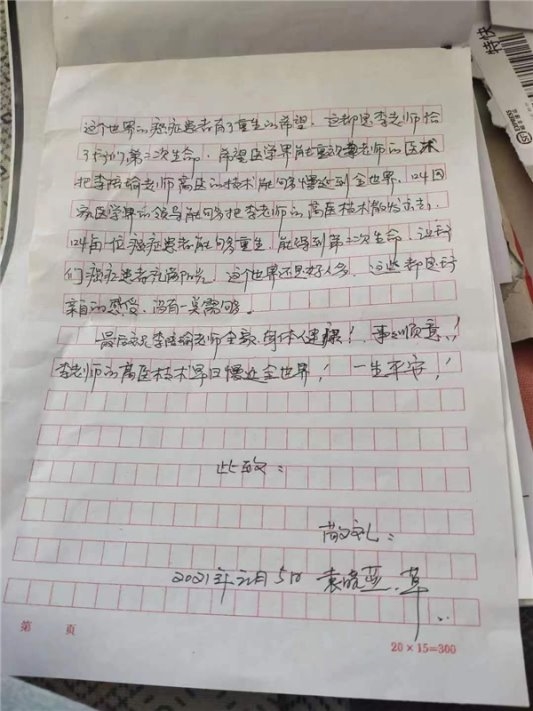 这个世界的癌症患者有了重生的希望。这都是李老师给
了我们第二次生命。希望医学界能重视李老师的医术
把李培瑜老师高医的技术能够传达到全世界,以及
医学界的领导能够把李老师的高医技术散发出去,
以每一位癌症患者能够重生,能得到第二次生命,让我
们癌症患者充满阳光,这个世界还是好人多,这些都是我
亲自的感受,没有一点
最后祝李培瑜老师全家身体健康!事事顺意!
李老师的高医技术早日传达全世界!一生平安!
此致:
敬礼:
2021年元月5日 袁 草
第 页
20×15=300
特快